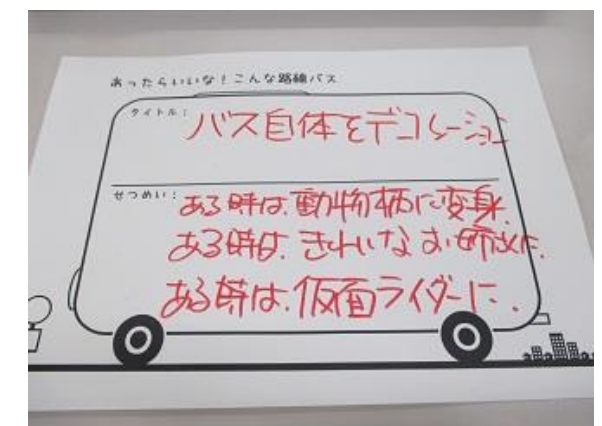 あったらいいな！こんな路線バス
タイトル：
バス自体をデコレーション
せつめい：
ある時は、動物柄に変身、
ある時は、きれいなお姉さんに、
ある時は、仮面ライダーに、